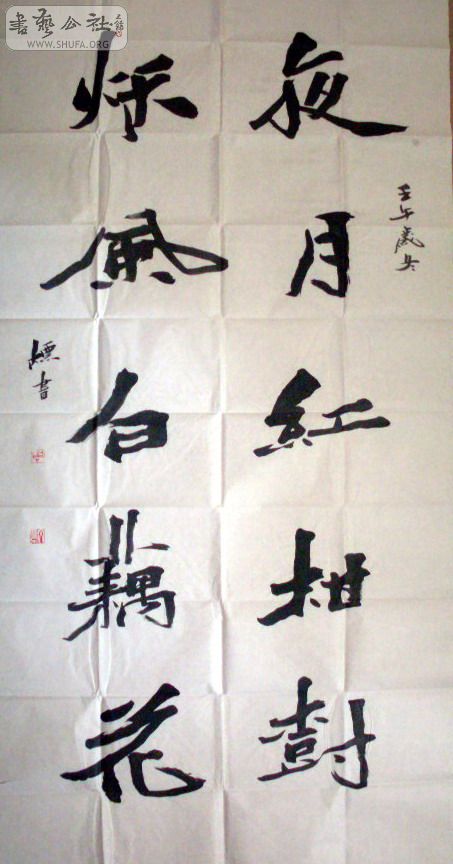 書藝公社
WWW.SHUFA.ORG
壬午歲冬
夜月紅柑樹
秌風白藕花
書